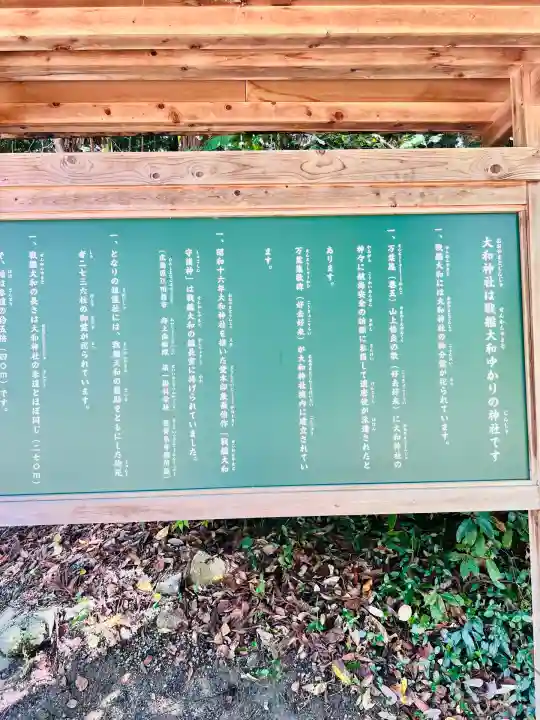 大和神社は戦艦大和ゆかりの神社です
一、戦艦大和には大和神社の御分霊が祀られています。
一、万葉集(巻五)山上憶良の歌(好去好来)に大和神社の
神々に航海安全の祈願に参詣して遣唐使が派遣されたと
あります。
万葉集歌碑(好去好来)が大和神社境内に建立されてい
ます。
一、昭和十六年大和神社を描いた堂本印象画伯作「戦艦大和
守護神」は戦艦大和の艦長室に捧げられていました。
一、となりの祖霊社には、戦艦大和の最期をともにした殉死
者二七三六柱の御霊が祀られています。
一、戦艦大和の長さは大和神社の参道とほぼ同じ(二七〇m)